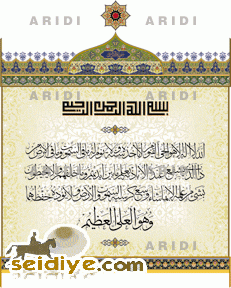 ARIDI ARIDI
ARIDI ARIDI
بسم الله الرحمن الرحيم
الله لا إله إلا هو الحي القيوم لا تأخذه سنة ولا نوم له ما في السموات وما في الأرض من
ذا الذي يشفع عنده إلا بإذنه يعلم ما بين أيديهم وما خلفهم ولا يحيطون
بشيء من علمه إلا بما شاء وسع كرسيه السموات والأرض ولا يؤده حفظهما
وهو العلي العظيم
ARIDI
seidiye.com